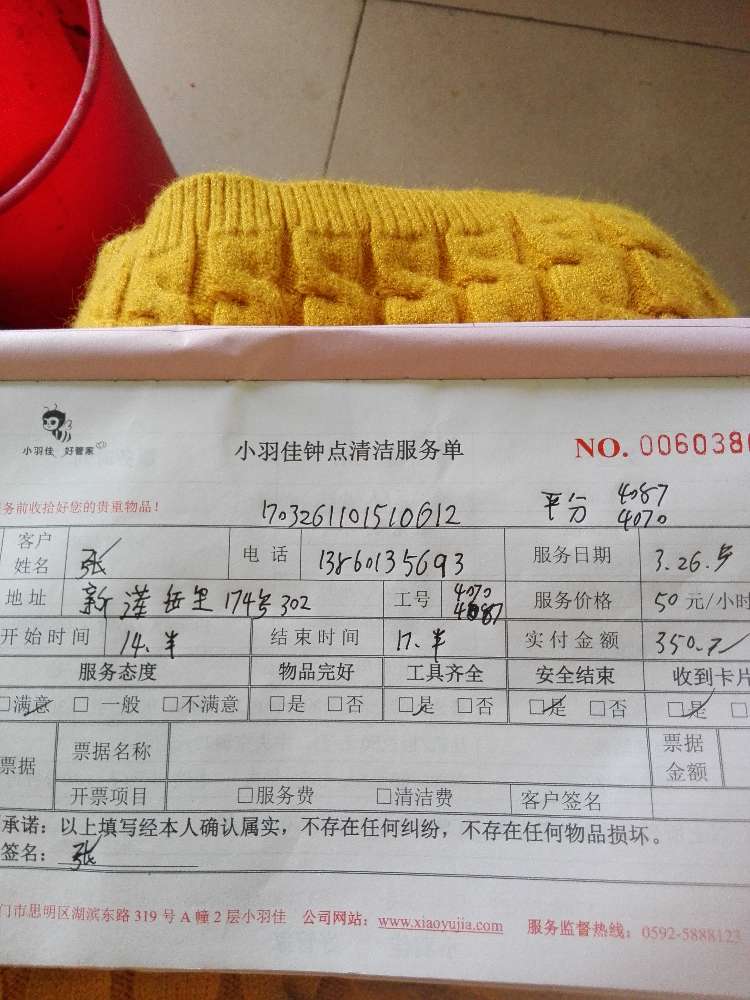 小羽佳 好管家
小羽佳钟点清洁服务单 NO. 0060380
务前收拾好您的贵重物品!
1703261101510612 平分 4087
4070
客户姓名 张 电话 13860135693 服务日期 3.26.
地址 新莲岳里174号302 工号 4070 4087 服务价格 50元/小时
开始时间 14.半 结束时间 17.半 实付金额 350.
服务态度 物品完好 工具齐全 安全结束 收到卡片
□满意 □一般 □不满意 □是 □否 □是 □否 □是 □否 □是 □
票据 票据名称 票据金额
开票项目 □服务费 □清洁费 客户签名
承诺:以上填写经本人确认属实,不存在任何纠纷,不存在任何物品损坏。
签名: 张
门市思明区湖滨东路 319 号 A 幢 2 层小羽佳 公司网站: www.xiaoyujia.com 服务监督热线: 0592-5888123